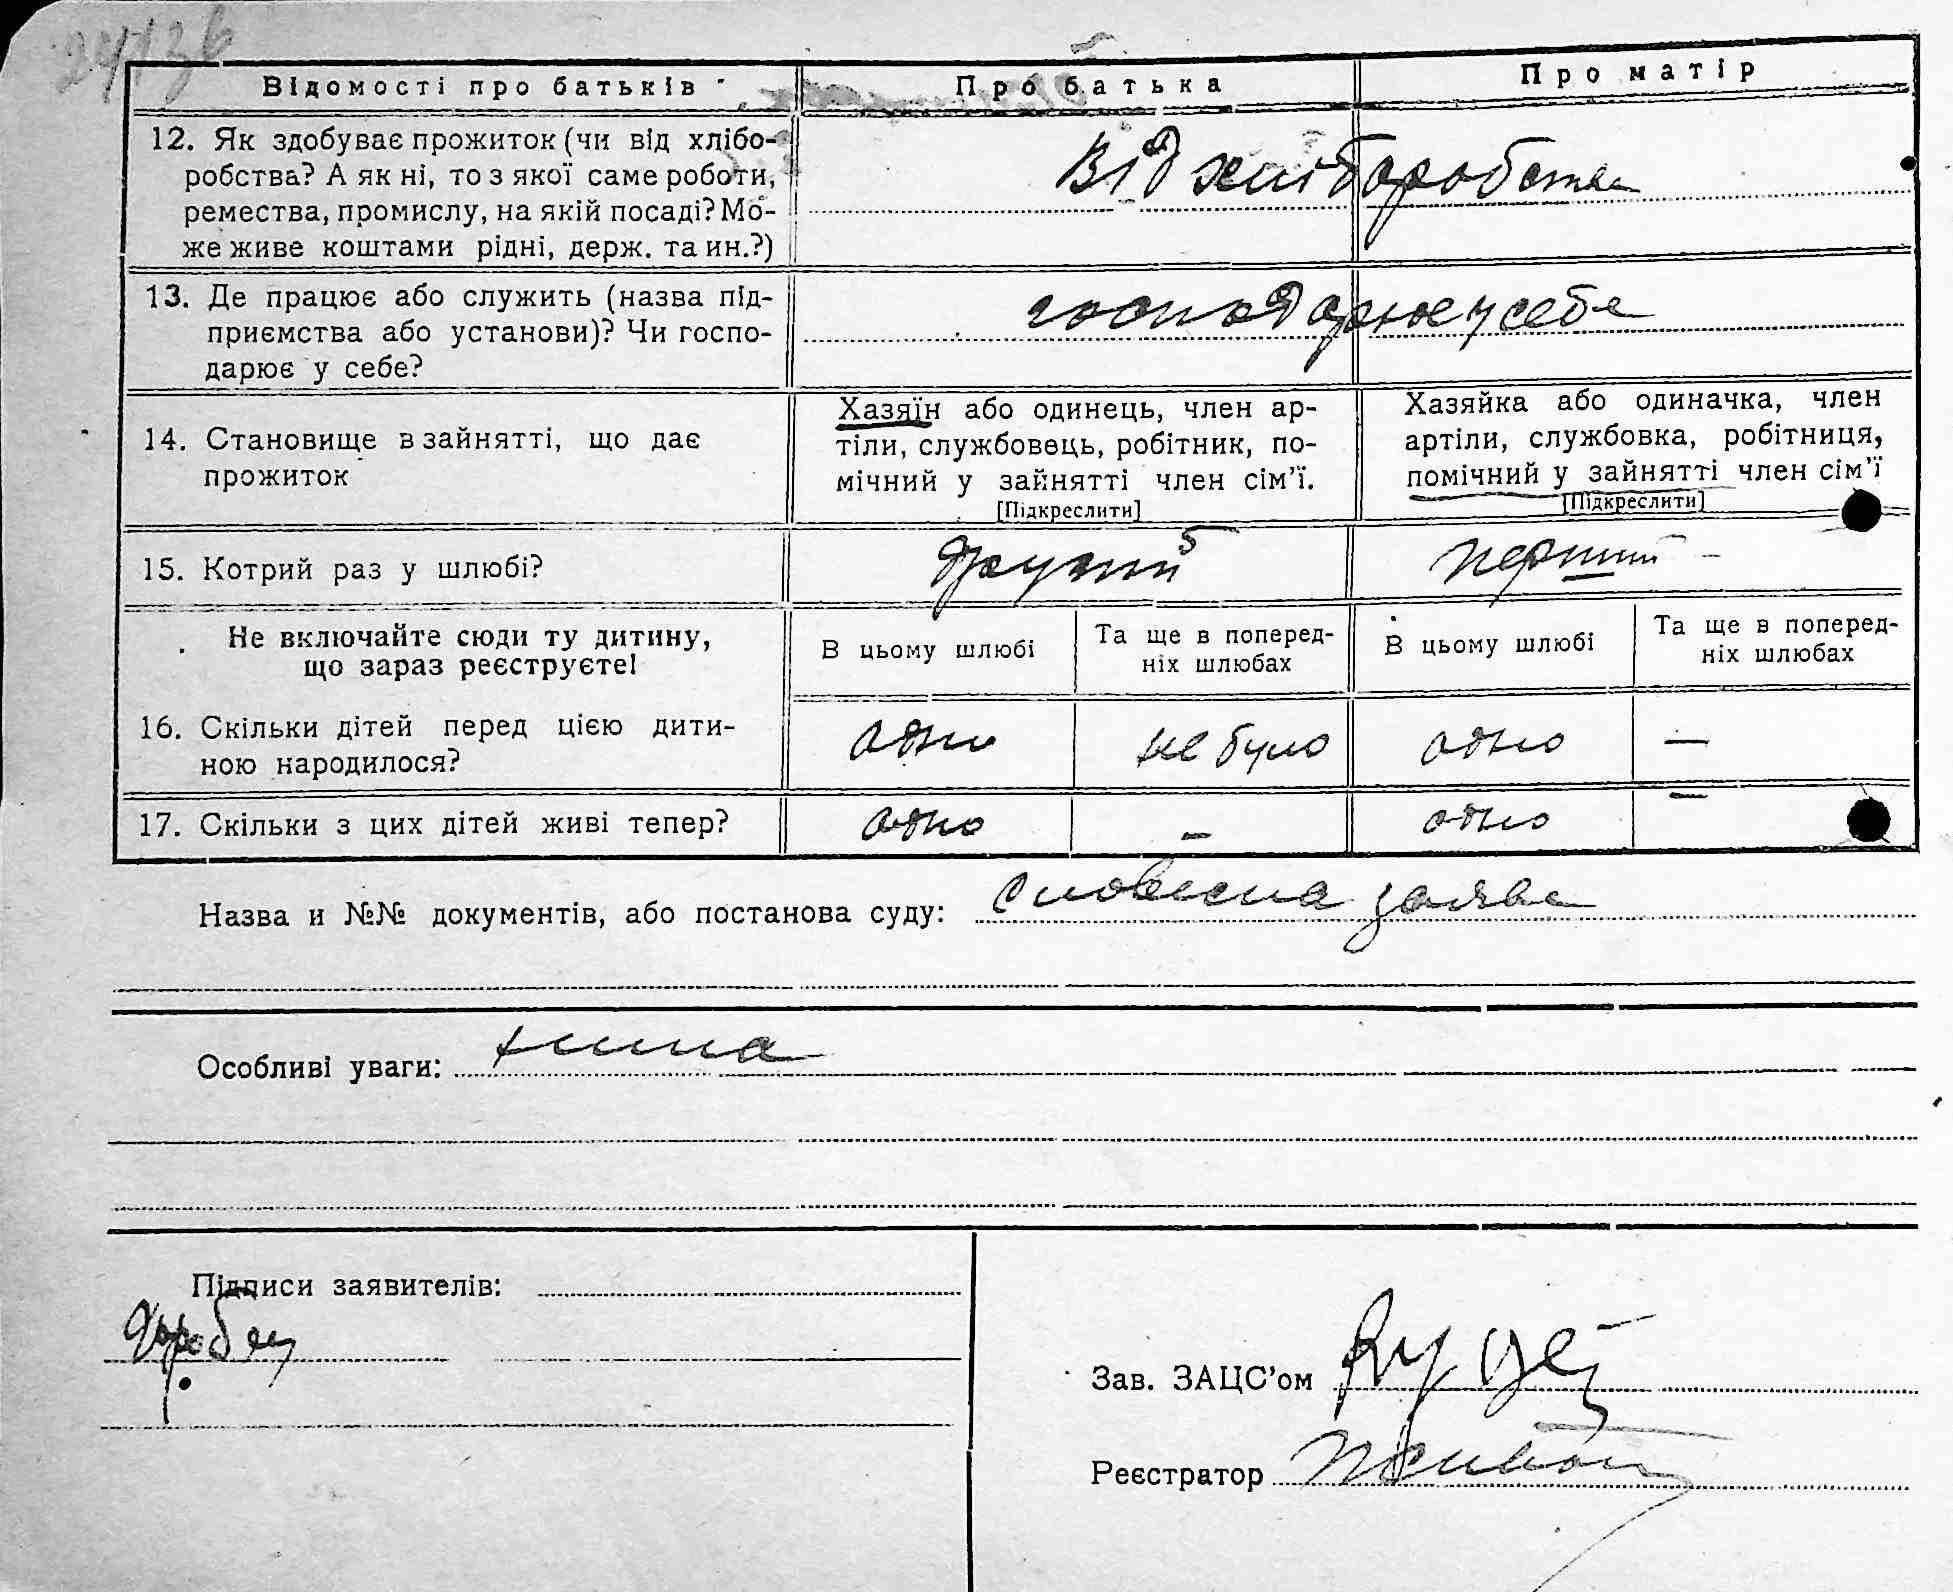 24136
Відомості про батьків Про батька Про матір
12. Як здобуває прожиток (чи від хлібо-
робства? А як ні, то з якої саме роботи,
ремества, промислу, на якій посаді? Мо-
же живе коштами рідні, держ. та ин.?)
Від хліборобства
13. Де працює або служить (назва під-
приємства або установи)? Чи госпо-
дарює у себе?
господарює у себе
14. Становище в зайнятті, що дає
прожиток
Хазяїн або одинець, член ар-
тіли, службовець, робітник, по-
мічний у зайнятті член сім'ї.
[Підкреслити]
Хазяйка або одиначка, член
артіли, службовка, робітниця,
помічний у зайнятті член сім'ї
[Підкреслити]
15. Котрий раз у шлюбі? другий перший –
Не включайте сюди ту дитину,
що зараз реєструєте!
В цьому шлюбі
Та ще в поперед-
ніх шлюбах
В цьому шлюбі
Та ще в поперед-
ніх шлюбах
16. Скільки дітей перед цією дити-
ною народилося?
одно не було одно —
17. Скільки з цих дітей живі тепер? одно – одно –
Назва и №№ документів, або постанова суду: словесна заява
Особливі уваги:
Підписи заявителів:
Зав. ЗАЦС'ом
Реєстратор